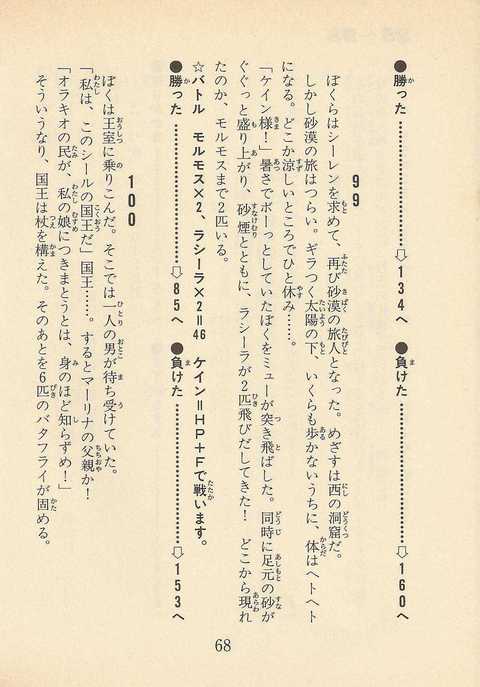 ●勝った……………⇨134へ　●負けた……………⇨160へ
99
ぼくらはシーレンを求めて、再び砂漠の旅人となった。めざすは西の洞窟だ。
しかし砂漠の旅はつらい。ギラつく太陽の下、いくらも歩かないうちに、体はヘトヘト
になる。どこか涼しいところでひと休み……。
「ケイン様!」暑さでボーっとしていたぼくをミューが突き飛ばした。同時に足元の砂が
ぐぐっと盛り上がり、砂煙とともに、ラシーラが2匹飛びだしてきた! どこから現れ
たのか、モルモスまで2匹いる。
☆バトル　モルモス×2、ラシーラ×2＝46　ケイン＝HP＋Fで戦います。
●勝った……………⇨85へ　●負けた……………⇨153へ
100
ぼくは王室に乗りこんだ。そこでは一人の男が待ち受けていた。
「私は、このシールの国王だ」国王……。するとマーリナの父親か!
「オラキオの民が、私の娘につきまとうとは、身のほど知らずめ!」
そういうなり、国王は杖を構えた。そのあとを6匹のバタフライが固める。
68